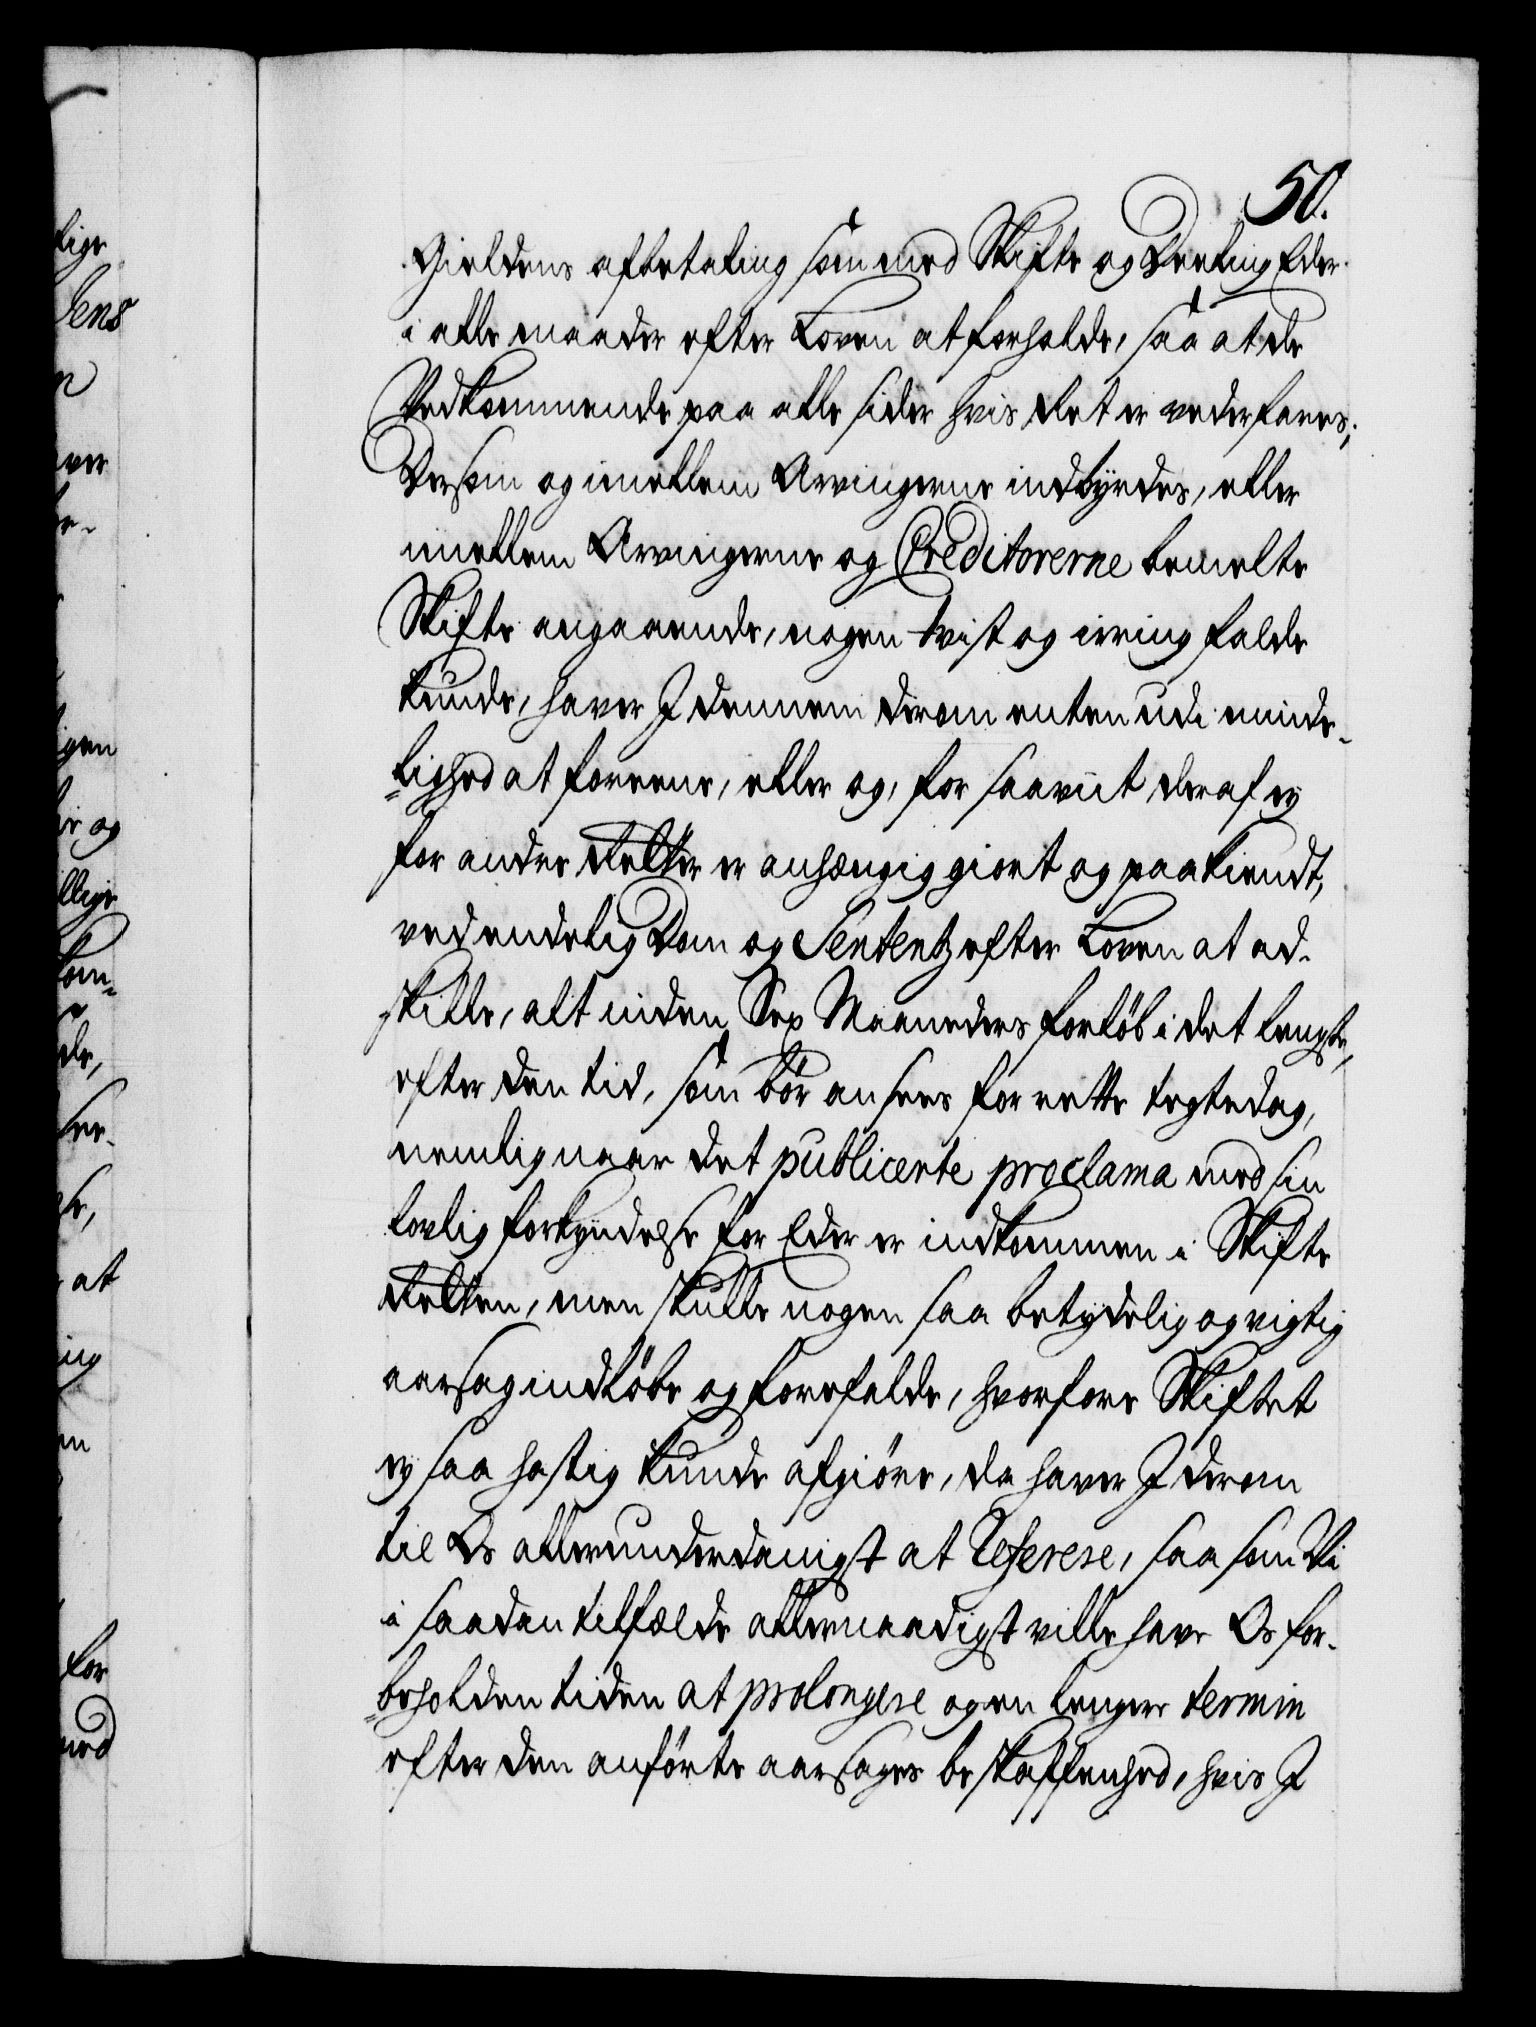 50.
Gieldens afbetaling som med Skifte og Deeling Eder
i alle maader efter Loven at forholde, saa at de
Vedkommende paa alle sider hvis Ret er vederfares;
Dersom og imellem Arvingerne indbyrdes, eller
imellem Arvingerne og Creditorerne bemelte
Skifte angaaende, nogen tvist og irring falde
kunde, haver I dennem derom enten udi minde-
lighed at foreene, eller og, for saavit deraf ey
for andre Retter er anhængig giort og paakiendt,
ved endelig Dom og Sententz efter Loven at ad-
skille, alt inden Sex Maaneders forløb i det lengste,
efter den tid, som bør ansees for rette tegtedag,
nemlig naar det publicerte proclama med sin
lovlig forkyndelse for Eder er indkommen i Skifte
Retten, men skulle nogen saa betydelig og vigtig
aarsag indløbe og forefalde, hvorfore Skiftet
ey saa hastig kunde afgiøre, da haver I derom
til Os allerunderdanigst at Referere, saa som Vi
i saadan tilfælde allernaadigst ville have Os for-
beholden tiden at prolongere og en lengere termin
efter den anførte aarsages beskaffenhed, hvis I